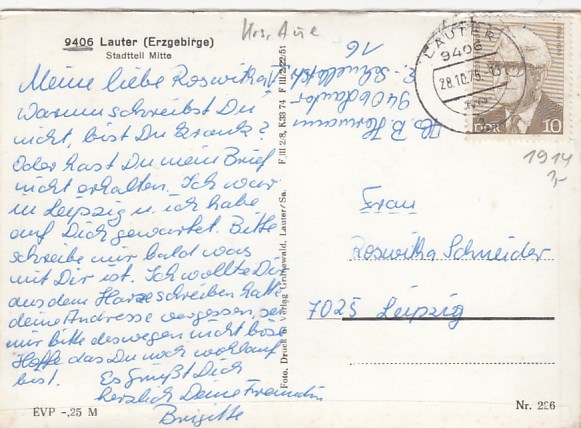 9406 Lauter (Erzgebirge)
Stadtteil Mitte
Krs. Aue
Meine liebe Roswitha!
Warum schreibst Du
nicht, bist Du krank?
Oder hast Du mein Brief
nicht erhalten. Ich war
in Leipzig u. ich habe
auf Dich gewartet. Bitte
schreibe mir bald was
mit Dir ist. Ich wollte Dir
aus dem Harze schreiben hatte
deine Andresse vergessen, sei
mir bitte deswegen nicht böse
Hoffe das Du noch wohlauf
bist.
Es grüßt Dich
herzlich Deine Freundin
Brigitte
EVP -,25 M
Foto, Druck u. Verlag Grünewald, Lauter/Sa. F III 2/8, K 33 74 F III 2/22/51
B. Hermann
9406 Lauter
16
LAUTER
9406
28.10.75
DDR 10
1914
Frau
Roswitha Schneider
7025 Leipzig
Nr. 226